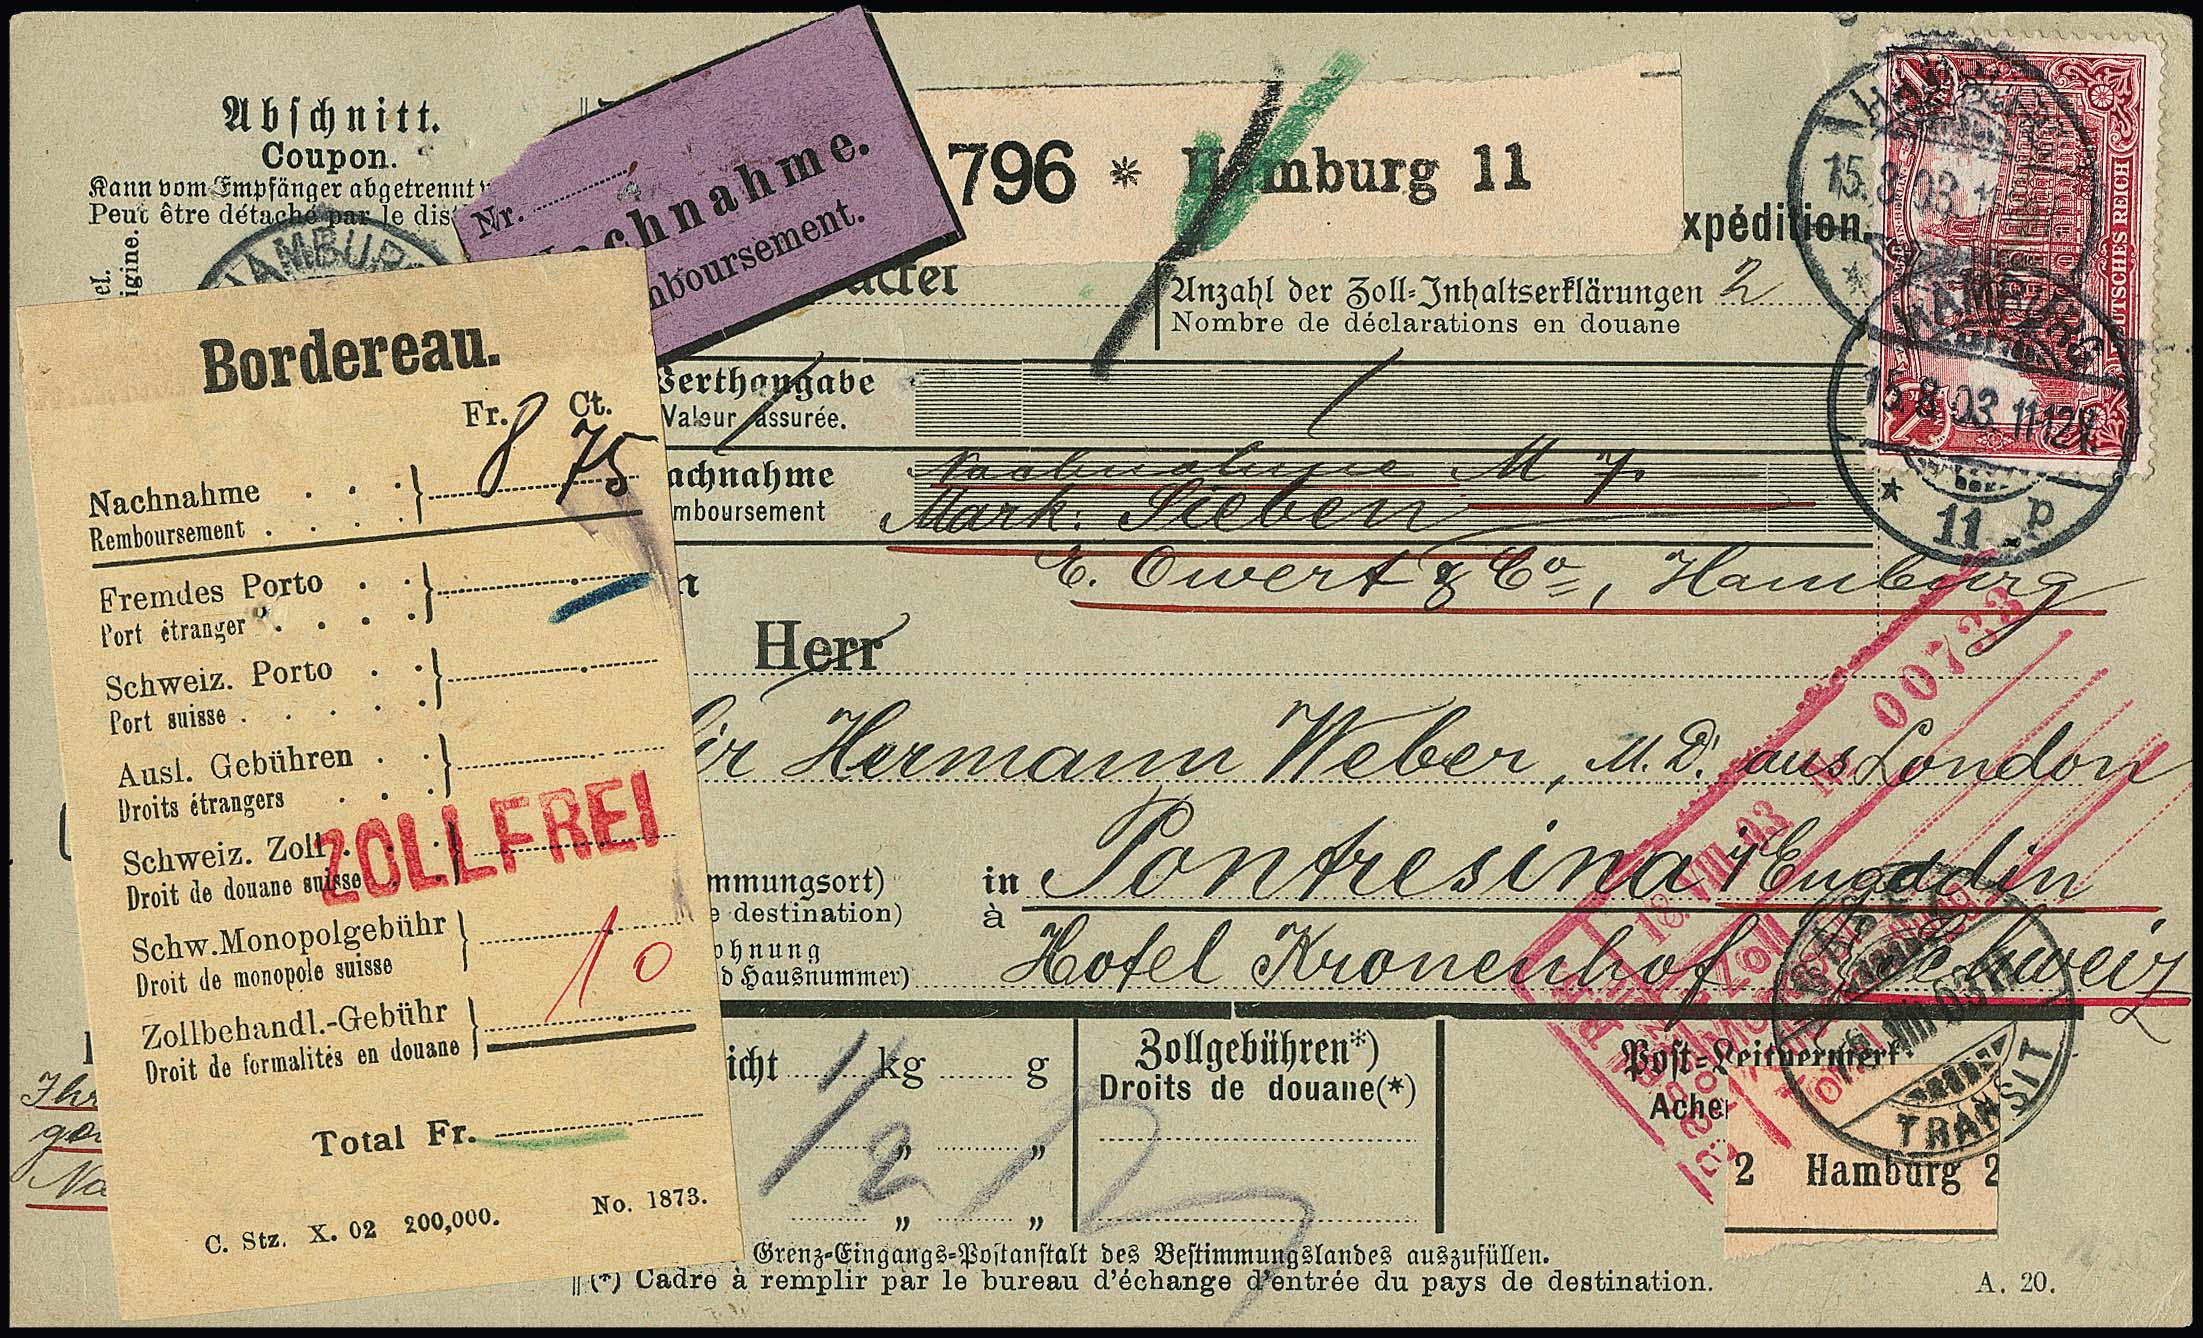 Abschnitt.
Coupon.
Kann vom Empfänger abgetrennt
Peut être détaché par le
HAMBURG
Nr.
Nachnahme.
796 * Hamburg 11
Anzahl der Zoll-Inhaltserklärungen 2
Nombre de déclarations en douane
Werthangabe
Valeur assurée.
Nachnahme M 7.
Mark: Sieben
E. Ewert & Co, Hamburg
Herr
Sir Hermann Weber, M.D. aus London
in Pontresina i/Engadin
à
Hotel Kronenhof Schweiz
kg g
" "
" "
Zollgebühren*)
Droits de douane(*)
Post-Leitvermerk
2 Hamburg 2
Grenz-Eingangs-Postanstalt des Bestimmungslandes auszufüllen.
(*) Cadre à remplir par le bureau d'échange d'entrée du pays de destination.
A. 20.
Bordereau.
Fr. Ct.
8 75
Nachnahme
Remboursement
Fremdes Porto
Port étranger
Schweiz. Porto
Port suisse
Ausl. Gebühren
Droits étrangers
Schweiz. Zoll
Droit de douane suisse
ZOLLFREI
Schw. Monopolgebühr
Droit de monopole suisse
10
Zollbehandl.-Gebühr
Droit de formalités en douane
Total Fr.
C. Stz. X. 02 200,000. No. 1873.
1 DEUTSCHES REICH 1
HAMBURG
15.8.03. 11-12V.
* 11 p
18. VIII. 03
Zoll
TRANSIT
1/2